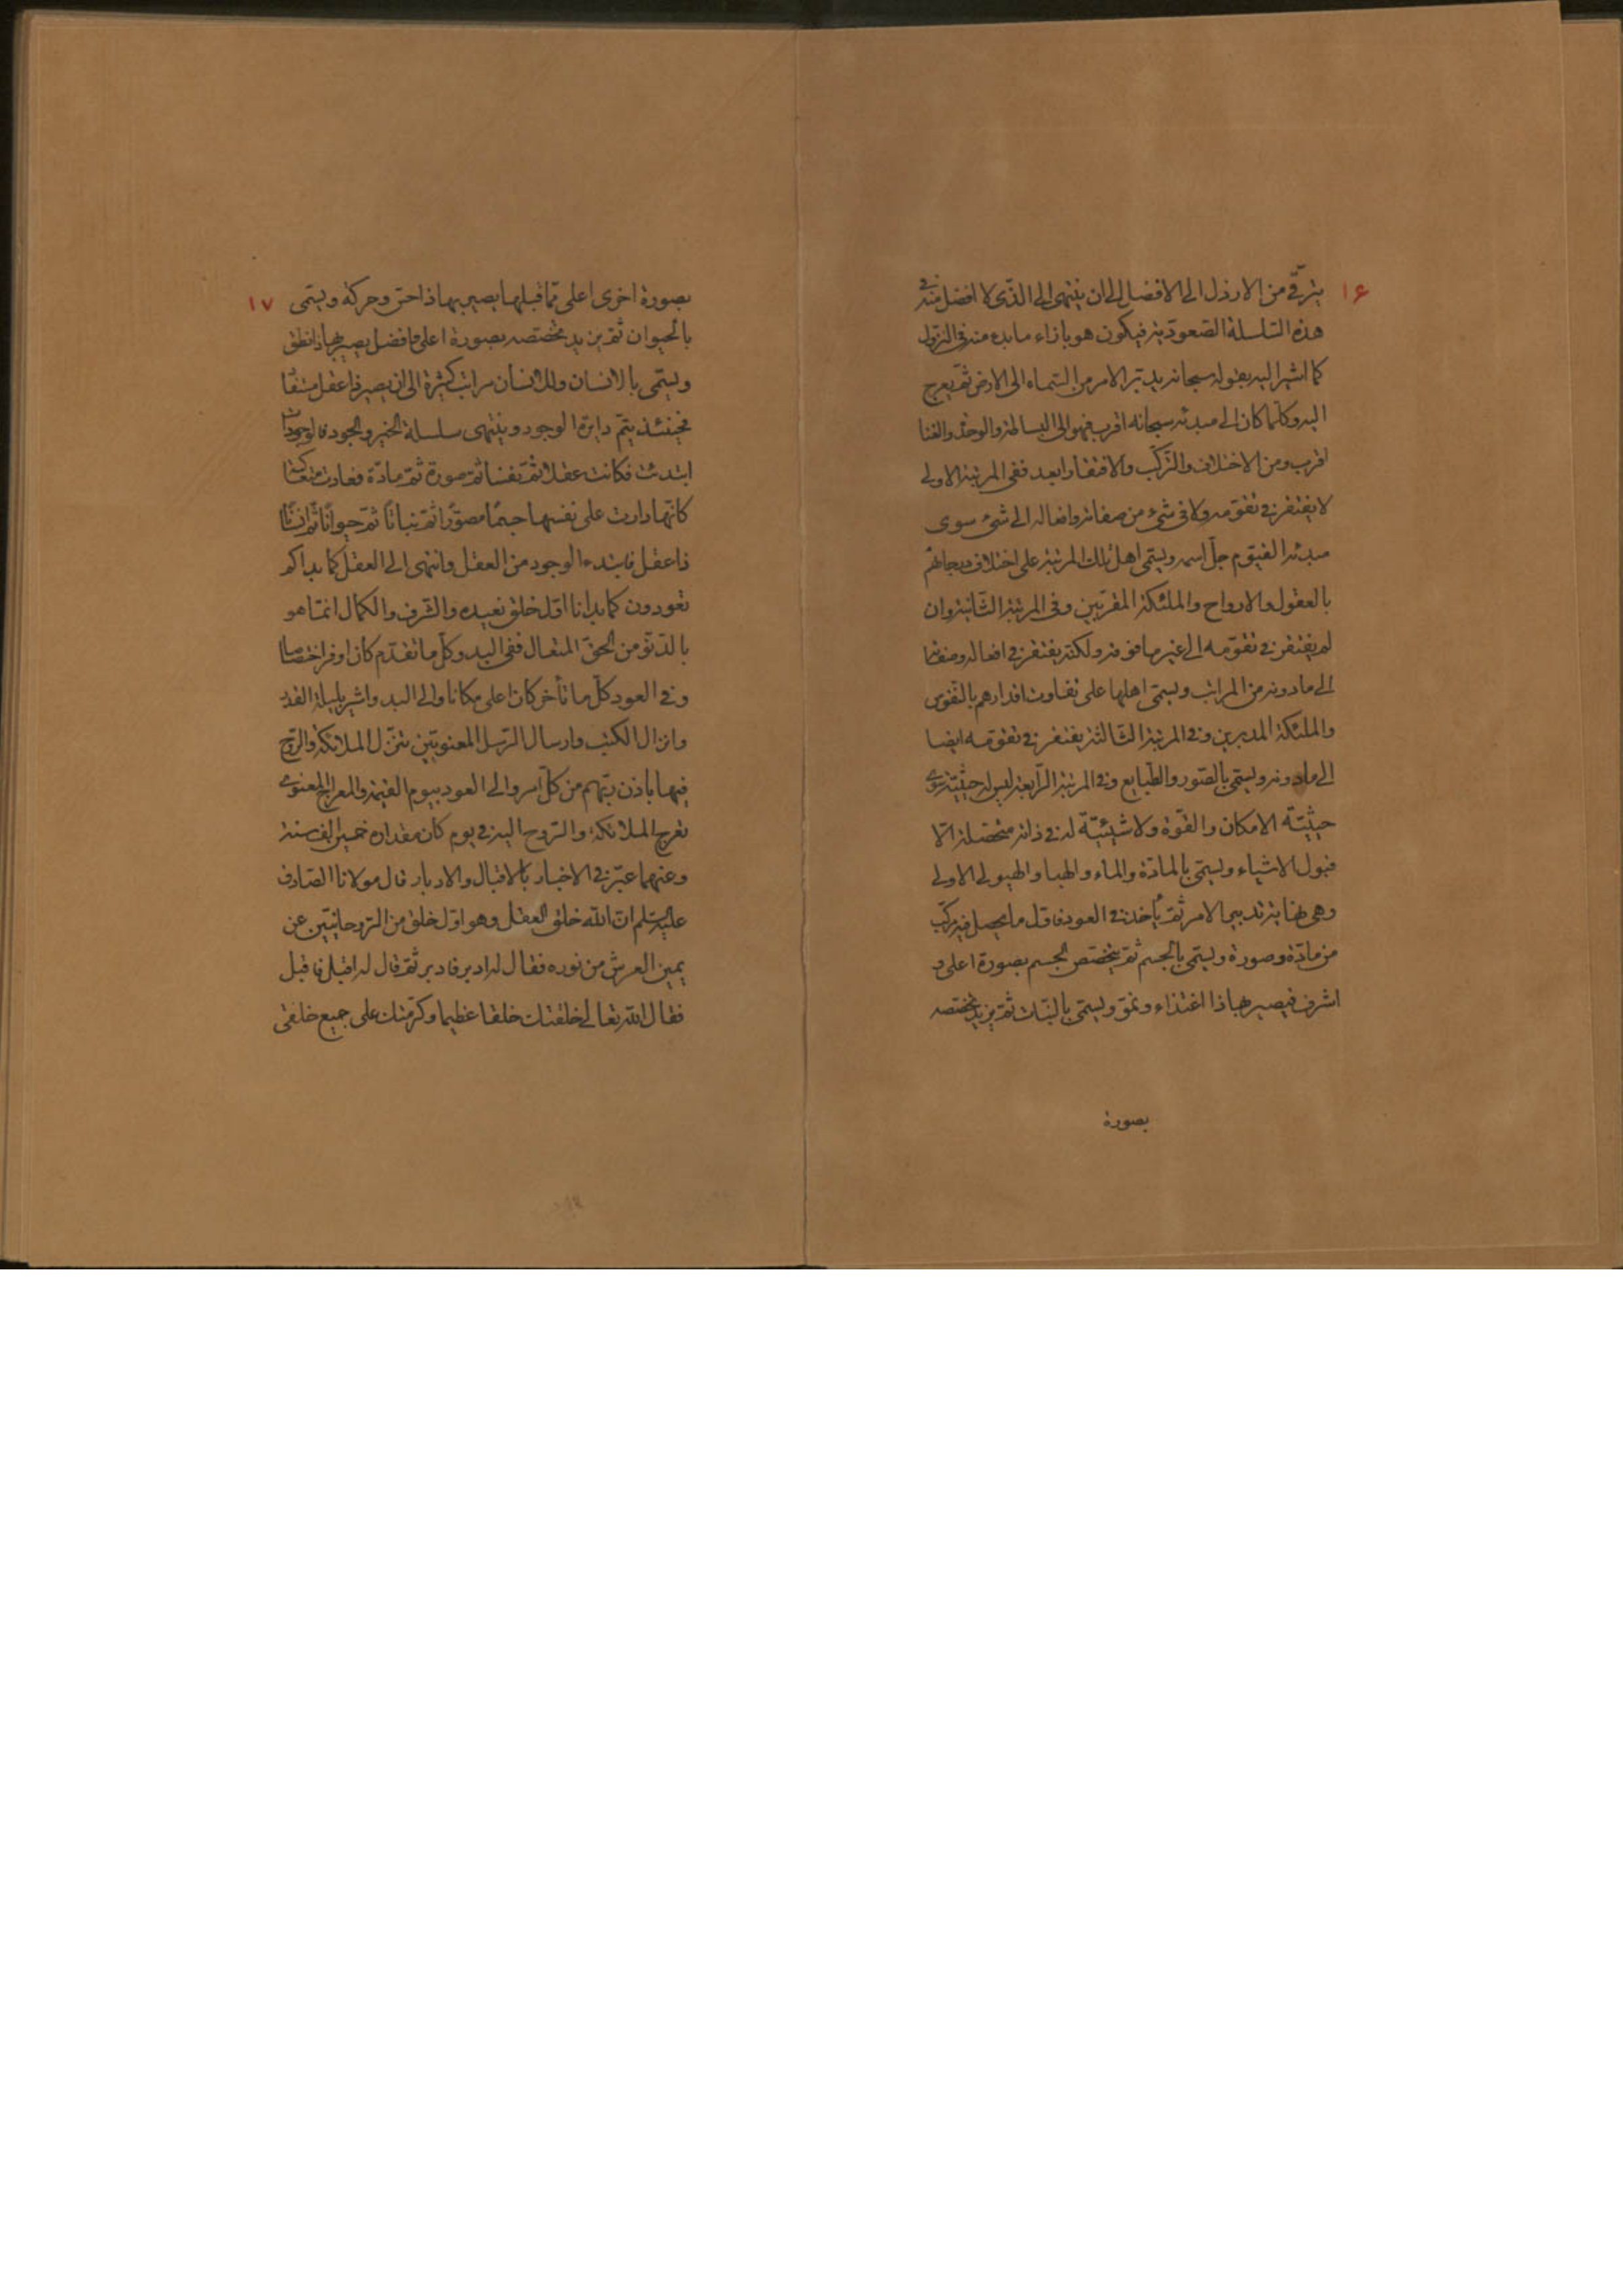 ١۶
يترقّى من الارذل الى الافضل الى ان ينتهى الى الذى لا افضل منه فى
هذه السلسلة الصعوديّة فيكون هو بازاء ما بدء منه فى النزول
كما اشير اليه بقوله سبحانه يدبّر الامر من السماء الى الارض ثمّ يعرج
اليه وكلّما كان الى مبدئه سبحانه اقرب فهو الى البساطة والوحدة والغنا
اقرب ومن الاختلاف والتركّب والافتقار ابعد ففى المرتبة الاولى
لا يفتقر فى تقوّمه ولا فى شىء من صفاته وافعاله الى شىء سوى
مبدئه القيّوم جلّ اسمه ويسمّى اهل تلك المرتبة على اختلاف درجاتهم
بالعقول والارواح والملئكة المقرّبين وفى المرتبة الثانية وان
لم يفتقر فى تقوّمه الى غير ما فوقه ولكنّه يفتقر فى افعاله وصفاته
الى ما دونه من المراتب ويسمّى اهلها على تفاوت اقدارهم بالنّفوس
والملئكة المدبرين وفى المرتبة الثالثة يفتقر فى تقوّمه ايضا
الى ما دونه ويسمّى بالصّور والطّبايع وفى المرتبة الرّابعة ليس له حيثيّة سوى
حيثيّة الامكان والقوّة ولا شيئيّة له فى ذاته متحصّلة الّا
قبول الاشياء ويسمّى بالمادّة والماء والهبا والهيولى الاولى
وهى نهاية تدبير الامر ثمّ يأخذ فى العود فاوّل ما يحصل فيه مركّب
من مادّة وصورة ويسمّى بالجسم ثمّ يتخصّص الجسم بصورة اعلى و
اشرف فيصير بها ذا اغتذاء ونموّ ويسمّى بالنّبات ثمّ يزيد تخصّصه
بصورة
١٧
بصورة اخرى اعلى ممّا قبلها يصير بها ذا حسّ وحركة ويسمّى
بالحيوان ثمّ يزيد تخصّصه بصورة اعلى وافضل يصير بها ذا نطق
ويسمّى بالانسان وللانسان مراتب كثيرة الى ان يصير ذا عقل مستفاد
فحينئذ يتمّ دايرة الوجود وينتهى سلسلة الخير والجود فالوجودات
ابتدئت فكانت عقلا ثمّ نفسا ثمّ صورة ثمّ مادّة فعادت متعاكسة
كانّها دارت على نفسها جسمًا مصوّرًا ثمّ نباتًا ثمّ حيوانًا ثمّ انسانًا
ذا عقل فابتدء الوجود من العقل وانتهى الى العقل كما بداكم
تعودون كما بدانا اوّل خلق نعيده والشرف والكمال انّما هو
بالدّنوّ من الحقّ المتعال ففى البدو كلّ ما تقدّم كان اوفر اختصاصا
وفى العود كلّ ما تأخّر كان اعلى مكانا والى البدو اشير بليلة القدر
وانزال الكتب وارسال الرّسل المعنويّين تنزّل الملائكة والرّوح
فيها باذن ربّهم من كلّ امر والى العود بيوم القيمة والمعراج المعنوى
تعرج الملائكة والرّوح اليه فى يوم كان مقداره خمسين الف سنة
وعنهما عبّر فى الاخبار بالاقبال والادبار قال مولانا الصّادق
عليه السّلم انّ اللّه خلق العقل وهو اوّل خلق من الرّوحانيّين عن
يمين العرش من نوره فقال له ادبر فادبر ثمّ قال له اقبل فاقبل
فقال اللّه تعالى خلقتك خلقا عظيما وكرّمتك على جميع خلقى